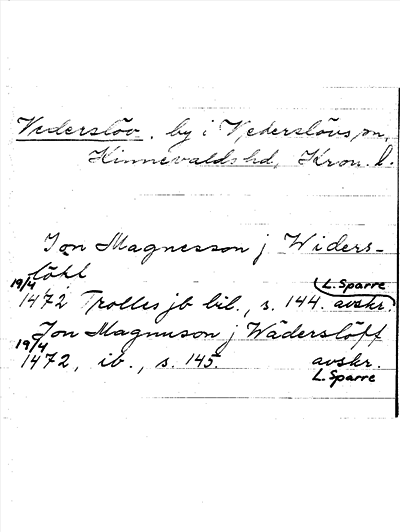 Vederslöv, by i Vederslövs sn,
Kinnevalds hd, Kron. l.
Jon Magnesson j Widers-
löhl
19/4 L. Sparre
1472 Trolles jb bil., s. 144. avskr.
Jon Magnuson j Wäderslöff
19/4
1472, ib., s. 145. avskr.
L. Sparre